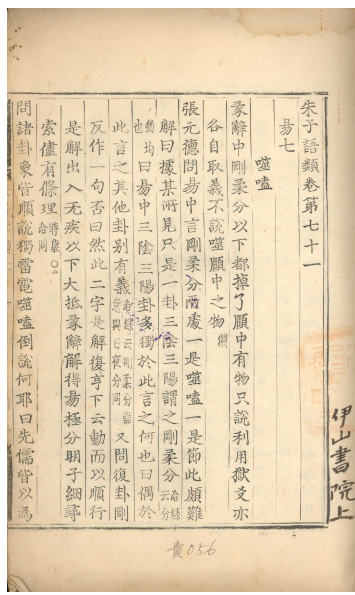 朱子語類卷第七十一
易七
噬嗑
彖辭中剛柔分以下都掉了頤中有物只說利用獄爻亦
各自取義不說噬頤中之物僩
張元德問易中言剛柔分兩處一是噬嗑一是節此頗難
解曰據某所見只是一卦三陰三陽謂之剛柔分洽錄云分
猶均也曰易中三陰三陽卦多獨於此言之何也曰偶於
此言之其他卦別有義洽錄云剛柔分語意與日夜分同又問復卦剛
反作一句否曰然此二字是解復亨下云動而以順行
是解出入无疾以下大抵彖辭解得易極分明子細尋
索儘有條理時舉〇洽同
問諸卦象皆順說獨雷電噬嗑倒說何耶曰先儒皆以為
伊山書院上
貴056